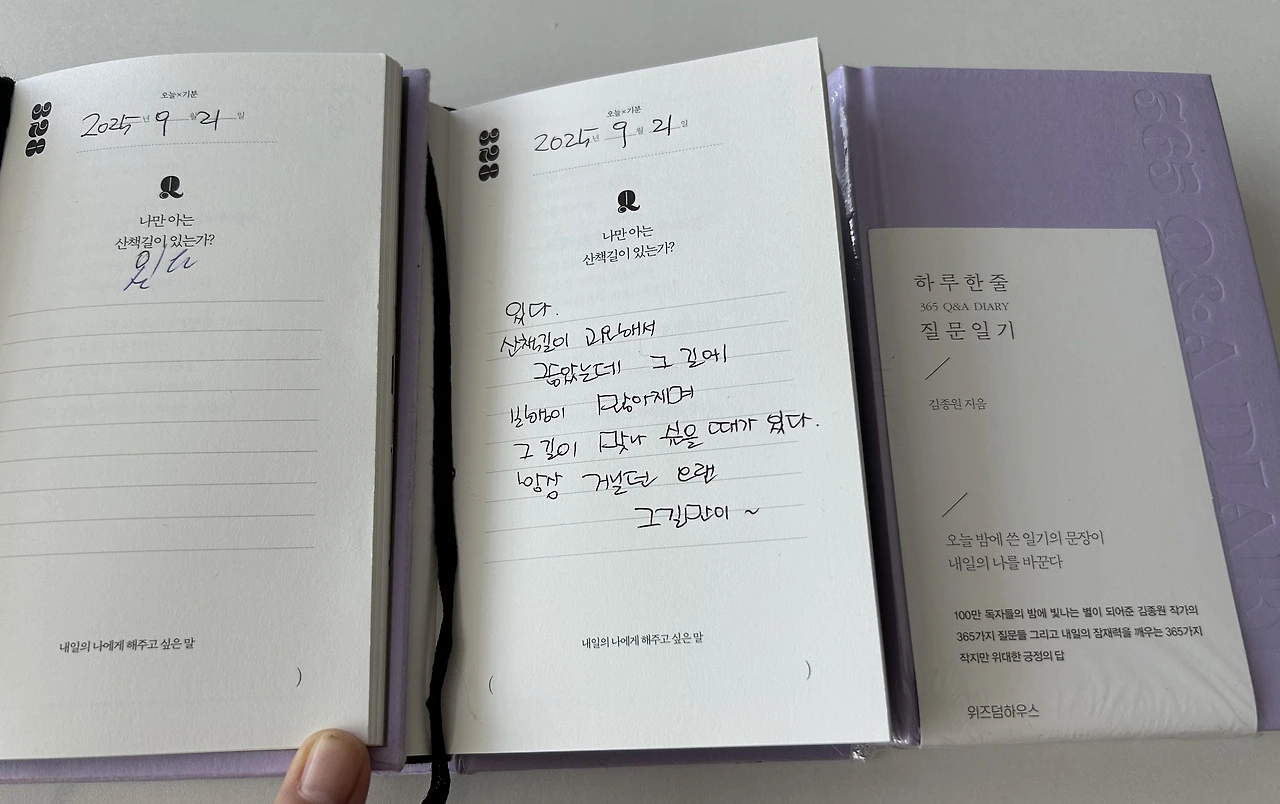 오늘×기분
328
2025년 9월 21일
Q
나만 아는
산책길이 있는가?
있다
내일의 나에게 해주고 싶은 말
)
오늘×기분
328
2025년 9월 21일
Q
나만 아는
산책길이 있는가?
있다.
산책길이
좋았는데 그 길에
발행이 많아지며
그 길이 맞나 싶을 때가 있다.
항상 거닐던
그길만이 ~
내일의 나에게 해주고 싶은 말
( )
365 Q&A DIARY
하루 한 줄
365 Q&A DIARY
질문 일기
김종원 지음
오늘 밤에 쓴 일기의 문장이
내일의 나를 바꾼다
100만 독자들의 밤에 빛나는 별이 되어준 김종원 작가의
365가지 질문들 그리고 내일의 잠재력을 깨우는 365가지
작지만 위대한 긍정의 답
위즈덤하우스